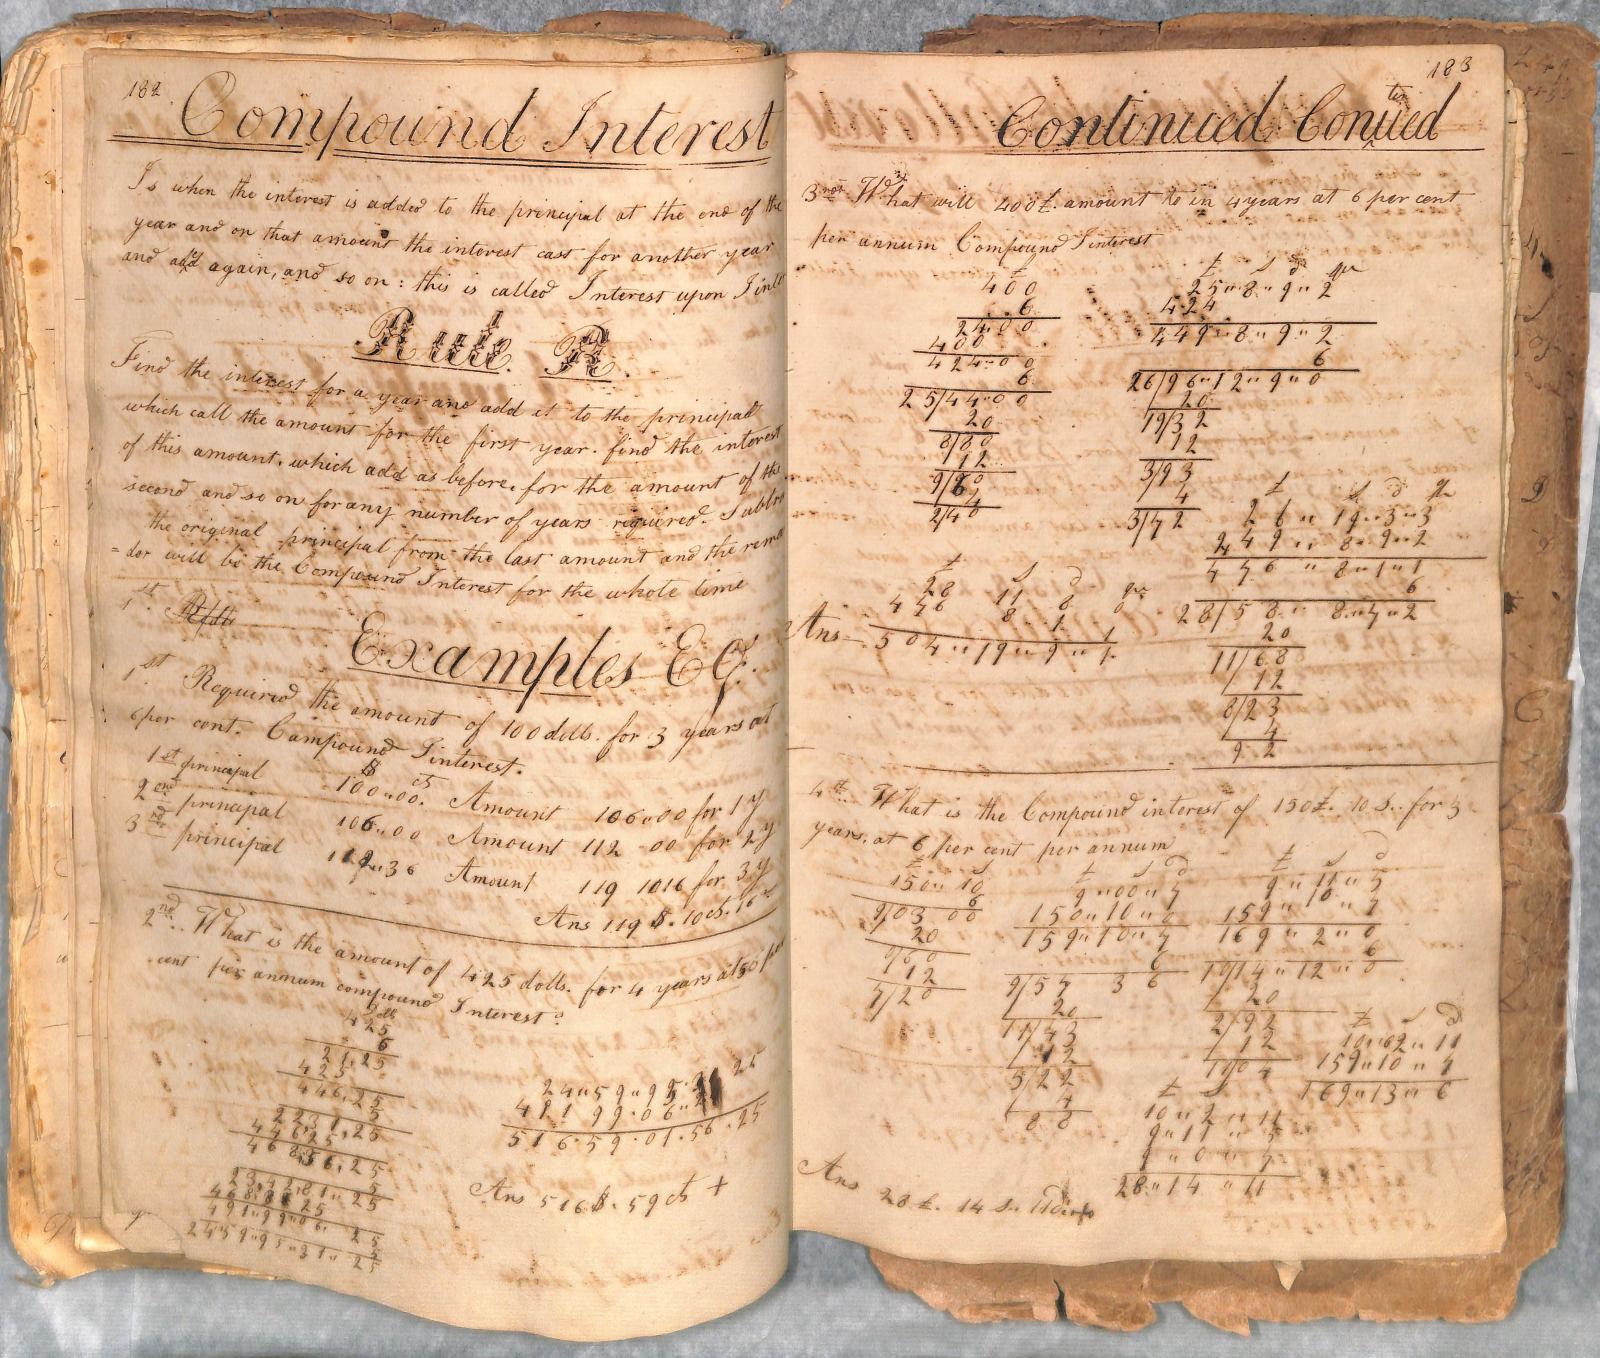 182
Compound Interest
Is when the interest is added to the principal at the end of the
year and on that amount the interest cast for another year
and add again, and so on: this is called Interest upon Inter
Rule. R.
Find the interest for a year and add it to the principal
which call the amount for the first year. find the interest
of this amount, which add as before, for the amount of the
second and so on for any number of years required. Subtr
the original principal from the last amount and the rema
=der will be the Compound Interest for the whole time
1st.
Examples EG.
1st. Required the amount of 100 dolls. for 3 years at
6 per cent. Compound Interest.
$ cts
1st principal 100,,00. Amount 106,,00 for 1 y
2nd principal 106,,00 Amount 112 -00 for 2 y
3rd principal 112,,36 Amount 119 1016 for 3 y
Ans 119 $. 10cts. 16
2nd. What is the amount of 425 dolls. for 4 years at 5 per
cent per annum compound Interest?
dolls
425
21,25
425
446,25
5
2231,25
446,25
468,56,25
5
2342,81,,25
468,56 25
491,,99,,06, 25
5
2459,,95,,31,, 25
24,,59,,95. 31 25
491 99.06,, 25
516.59.01.56.25
Ans 516$. 59cts +
183
Continued Contued
3 What will 400£. amount to in 4 years at 6 per cent
per annum Compound Interest
£
400
6
24.00
400
424-00
6
25/44-00
20
8/80
12
9/60
4
2/40
£ S d qr
25,,8,,9,,2
424
449,,8,,9,,2
6
26/96,,12,,9,,0
20
19/32
12
3/93
4
3/72
£ S d qr
26,,19,,3,,3
449,,8,,9,,2
476,,8,,1,,1
6
28/58,,8,,7,,2
20
11/68
12
8/23
4
92
£ S d qr
28 11 8 0
476 8 1 1
Ans 504,,19,,9,,1.
4th. What is the Compound interest of 150£. 10 S. for 3
years, at 6 per cent per annum
£ S
150,,10
6
9/03 00
20
0/60
12
7/20
£ S d
9,,00,,7
150,,10,,0
159,,10,,7
6
9/57 3 6
20
11/43
12
5/22
4
88
£ S d
9,,11,,5
159,,10,,7
169,,2,,0
6
10/14,,12,,0
20
2/92
12
11/04
£ S d
10,,02,,11
159,,10,,7
169,,13,,6
£ S
10,,2,,11
9,,11,,5
9,,0,,7
28,,14,,11
Ans 28£. 14 S.